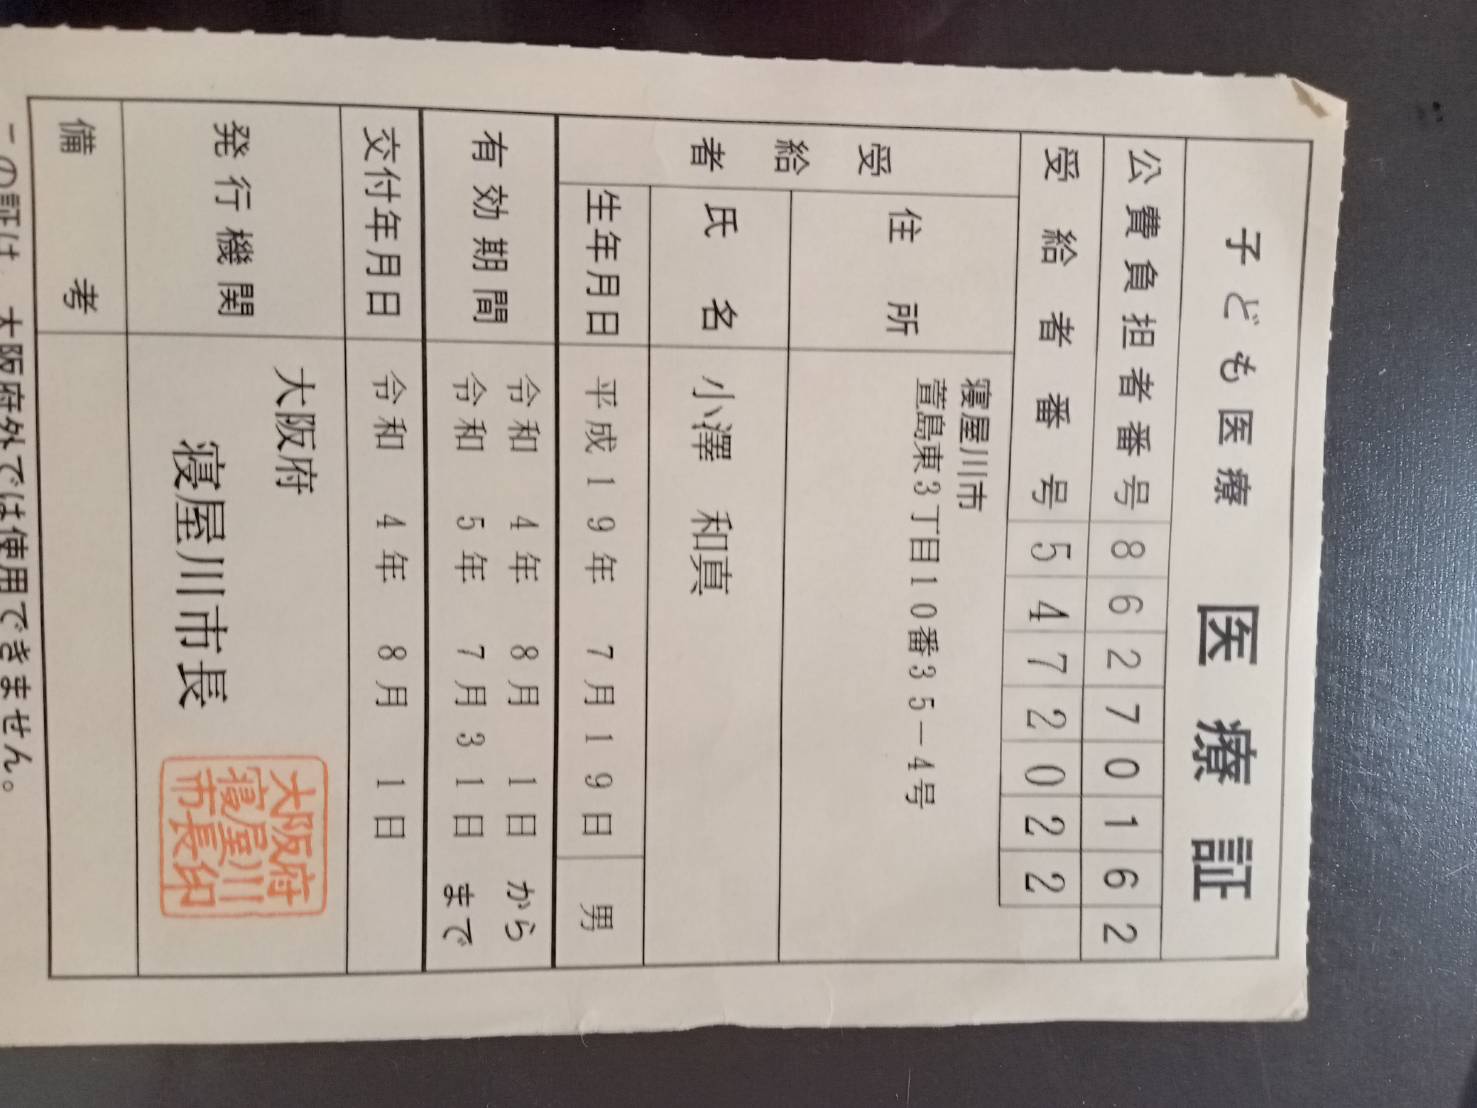 子ども医療 医療証
公費負担者番号 86270162
受給者番号 5472022
受給者
住所 寝屋川市
萱島東3丁目10番35－4号
氏名 小澤 和真
生年月日 平成19年 7月19日 男
有効期間 令和 4年 8月 1日 から
令和 5年 7月31日 まで
交付年月日 令和 4年 8月 1日
発行機関 大阪府
寝屋川市長
大阪府
寝屋川
市長印
備考
この証は、大阪府外では使用できません。